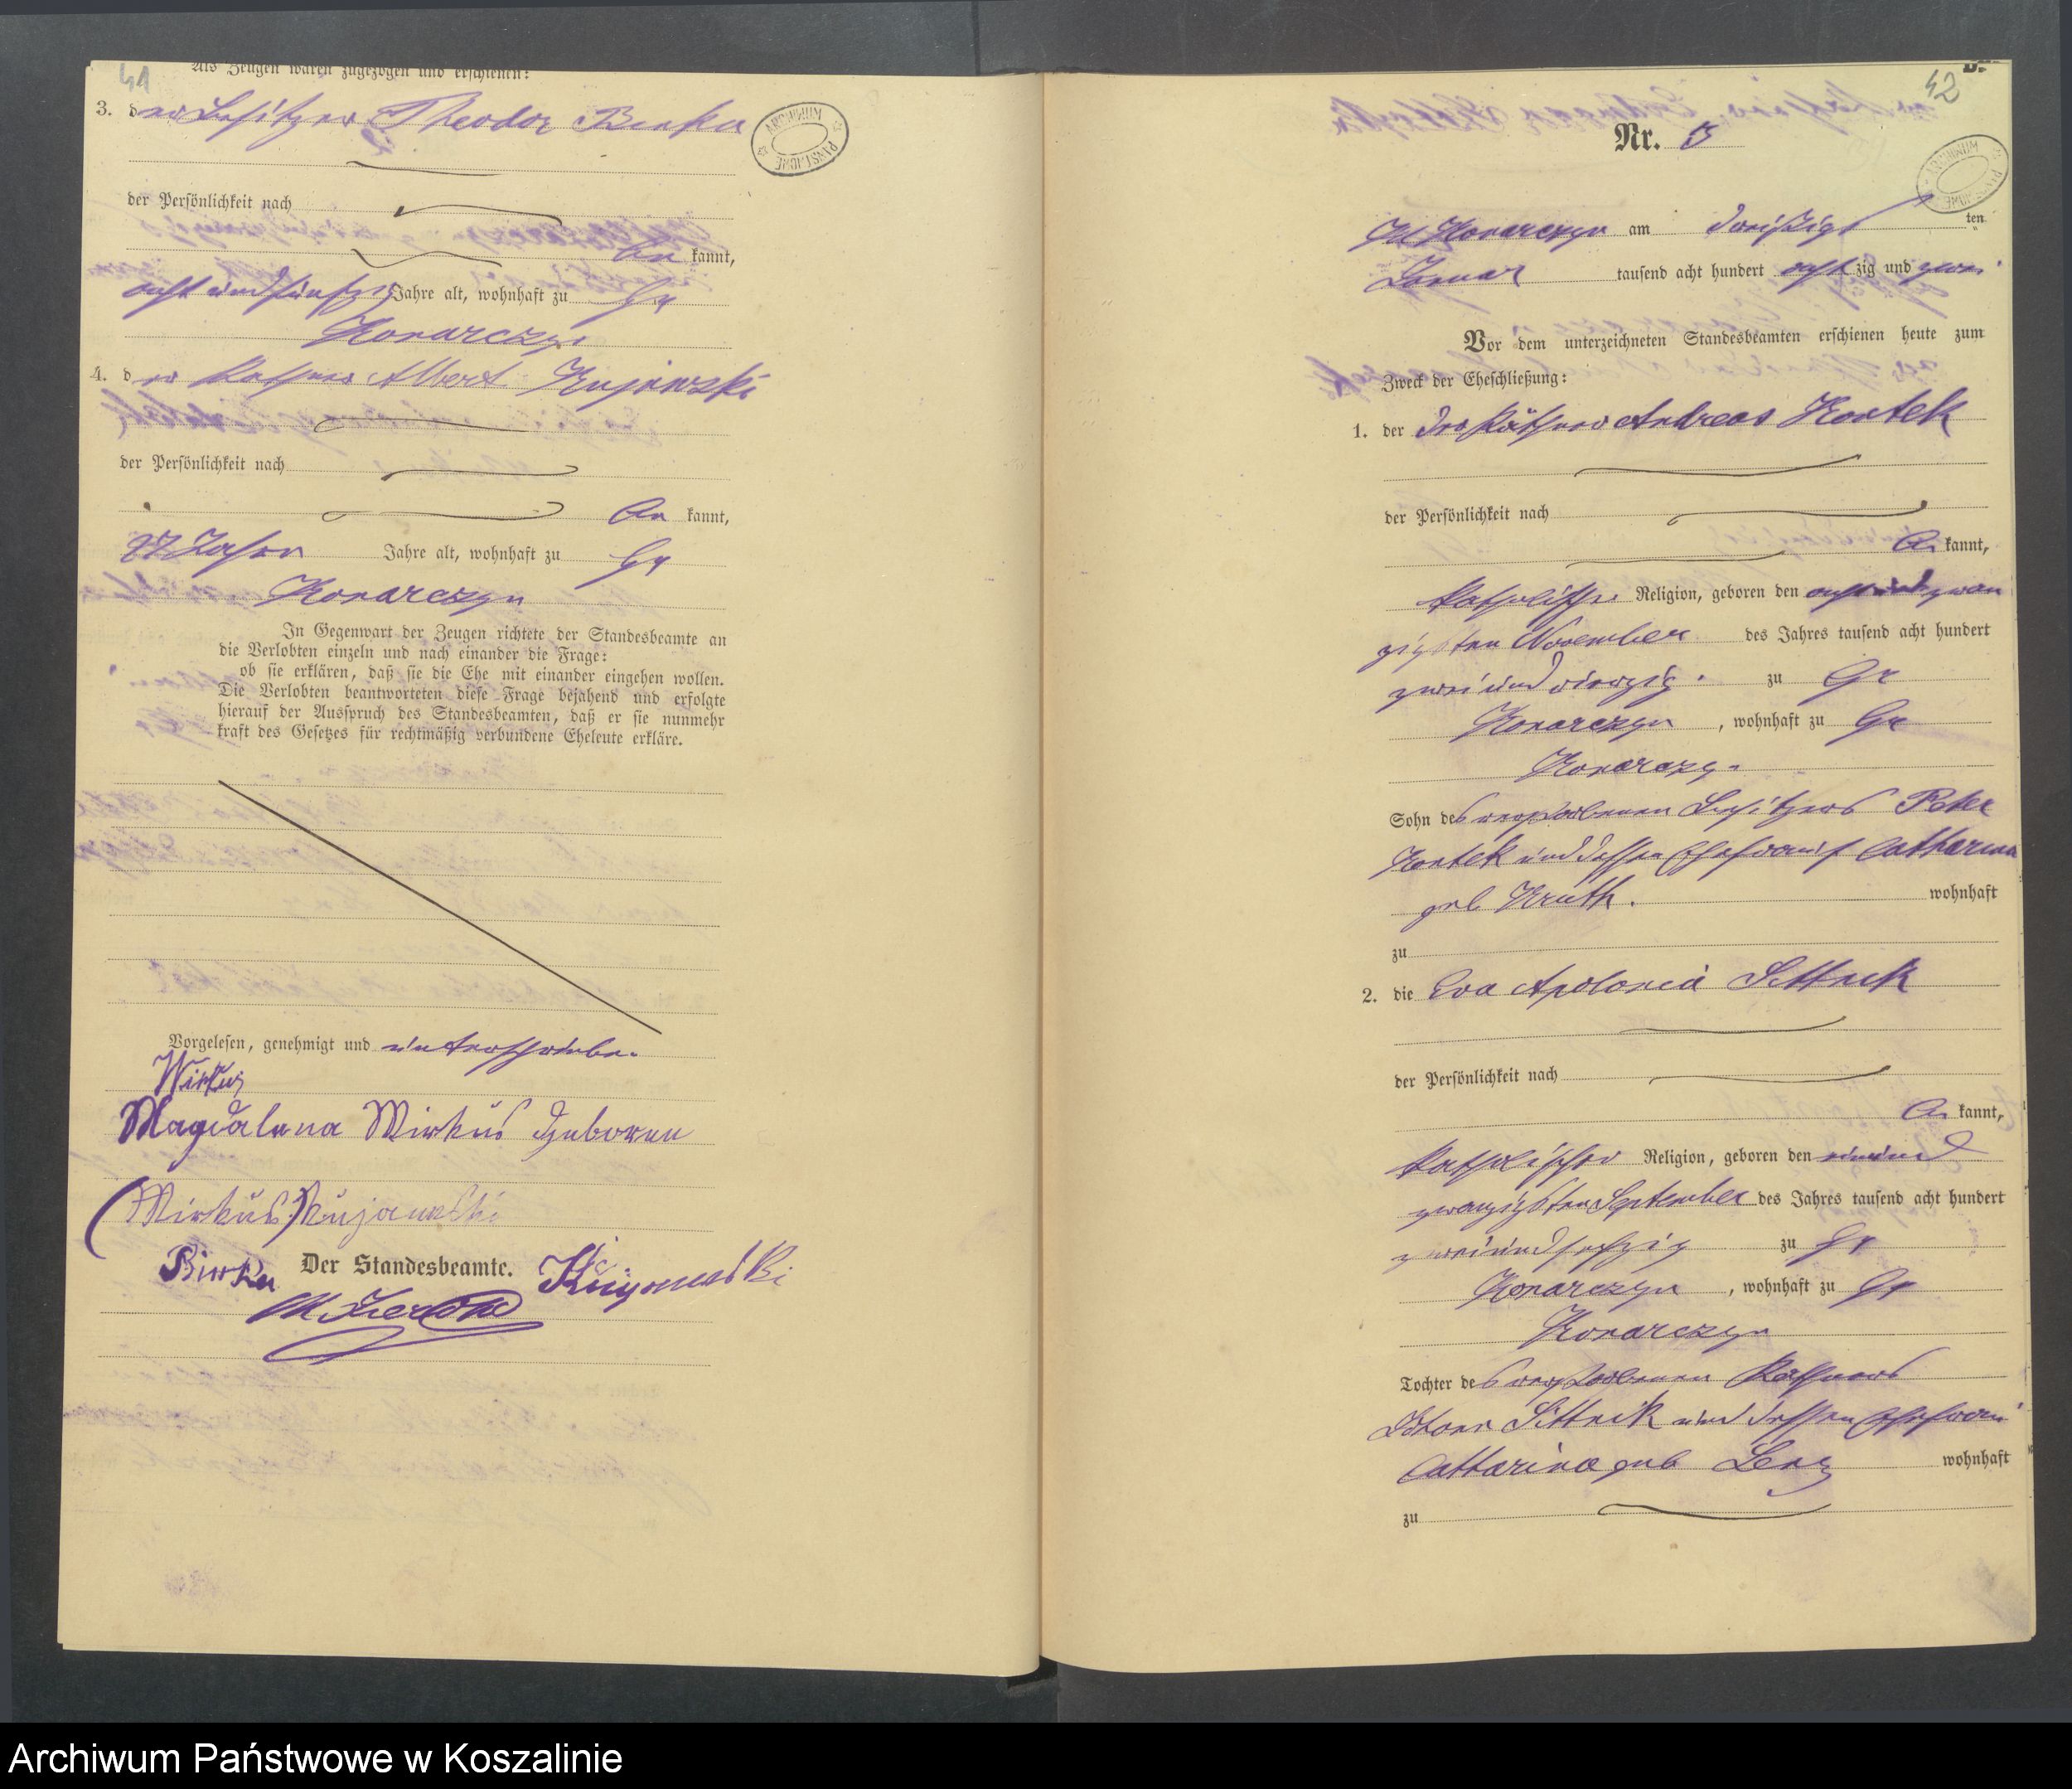 41
Als Zeugen waren zugezogen und erschienen:
3. der Besitzer Theodor
ARCHIWUM PAŃSTWOWE
der Persönlichkeit nach
be kannt,
acht und fünfzig Jahre alt, wohnhaft zu Gr
Konarczyn
4. der Käthner Albert Kujawski
der Persönlichkeit nach
be kannt,
27 Jahre Jahre alt, wohnhaft zu Gr
Konarczyn
In Gegenwart der Zeugen richtete der Standesbeamte an
die Verlobten einzeln und nach einander die Frage:
ob sie erklären, daß sie die Ehe mit einander eingehen wollen.
Die Verlobten beantworteten diese Frage bejahend und erfolgte
hierauf der Ausspruch des Standesbeamten, daß er sie nunmehr
kraft des Gesetzes für rechtmäßig verbundene Eheleute erkläre.
Vorgelesen, genehmigt und unterschrieben
Wirkus
Magdalena Wirkus geboren
(Wirkus) Kujawski
Der Standesbeamte. Kujawski
42
B.
Nr. 5
ARCHIWUM PAŃSTWOWE
Gr Konarczyn am dreißigsten
Januar tausend acht hundert acht zig und zwei
Vor dem unterzeichneten Standesbeamten erschienen heute zum
Zweck der Eheschließung:
1. der Käthner Andreas Kortek
der Persönlichkeit nach
be kannt,
katholischer Religion, geboren den acht und zwan
zigsten November des Jahres tausend acht hundert
zwei und vierzig zu Gr
Konarczyn, wohnhaft zu Gr
Konarczyn
Sohn des verstorbenen Besitzers Peter
Kortek und dessen Ehefrau Catharina
geb Kruth. wohnhaft
zu
2. die Eva Apolonia Sittnik
der Persönlichkeit nach
be kannt,
katholischer Religion, geboren den ein und
zwanzigsten September des Jahres tausend acht hundert
zwei und sechzig zu Gr
Konarczyn, wohnhaft zu Gr
Konarczyn
Tochter des verstorbenen Käthners
Johann Sittnik und dessen Ehefrau
Catharina geb Lenz wohnhaft
zu
Archiwum Państwowe w Koszalinie